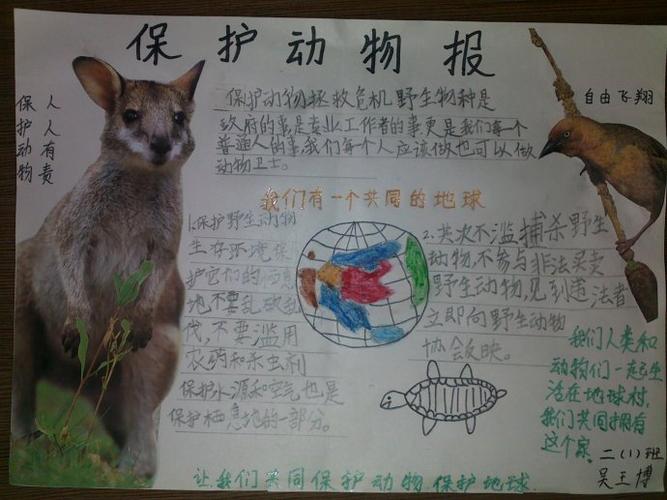 保护动物报
保护动物
人人有责
自由飞翔
保护动物拯救危机野生物种是
政府的事是专业工作者的事更是我们每一个
普通人的事我们每个人应该做也可以做
动物卫士。
我们有一个共同的地球
1.保护野生动物
生存环境保
护它们的栖息
地不要乱砍乱
伐,不要滥用
农药和杀虫剂
保护水源和空气也是
保护栖息地的一部分。
2.其次不滥捕杀野生
动物,不参与非法买卖
野生动物,见到违法者
立即向野生动物
协会反映。
我们人类和
动物们一起生
活在地球村,
我们共同拥有
这个家
二(1)班
吴王博
让我们共同保护动物保护地球